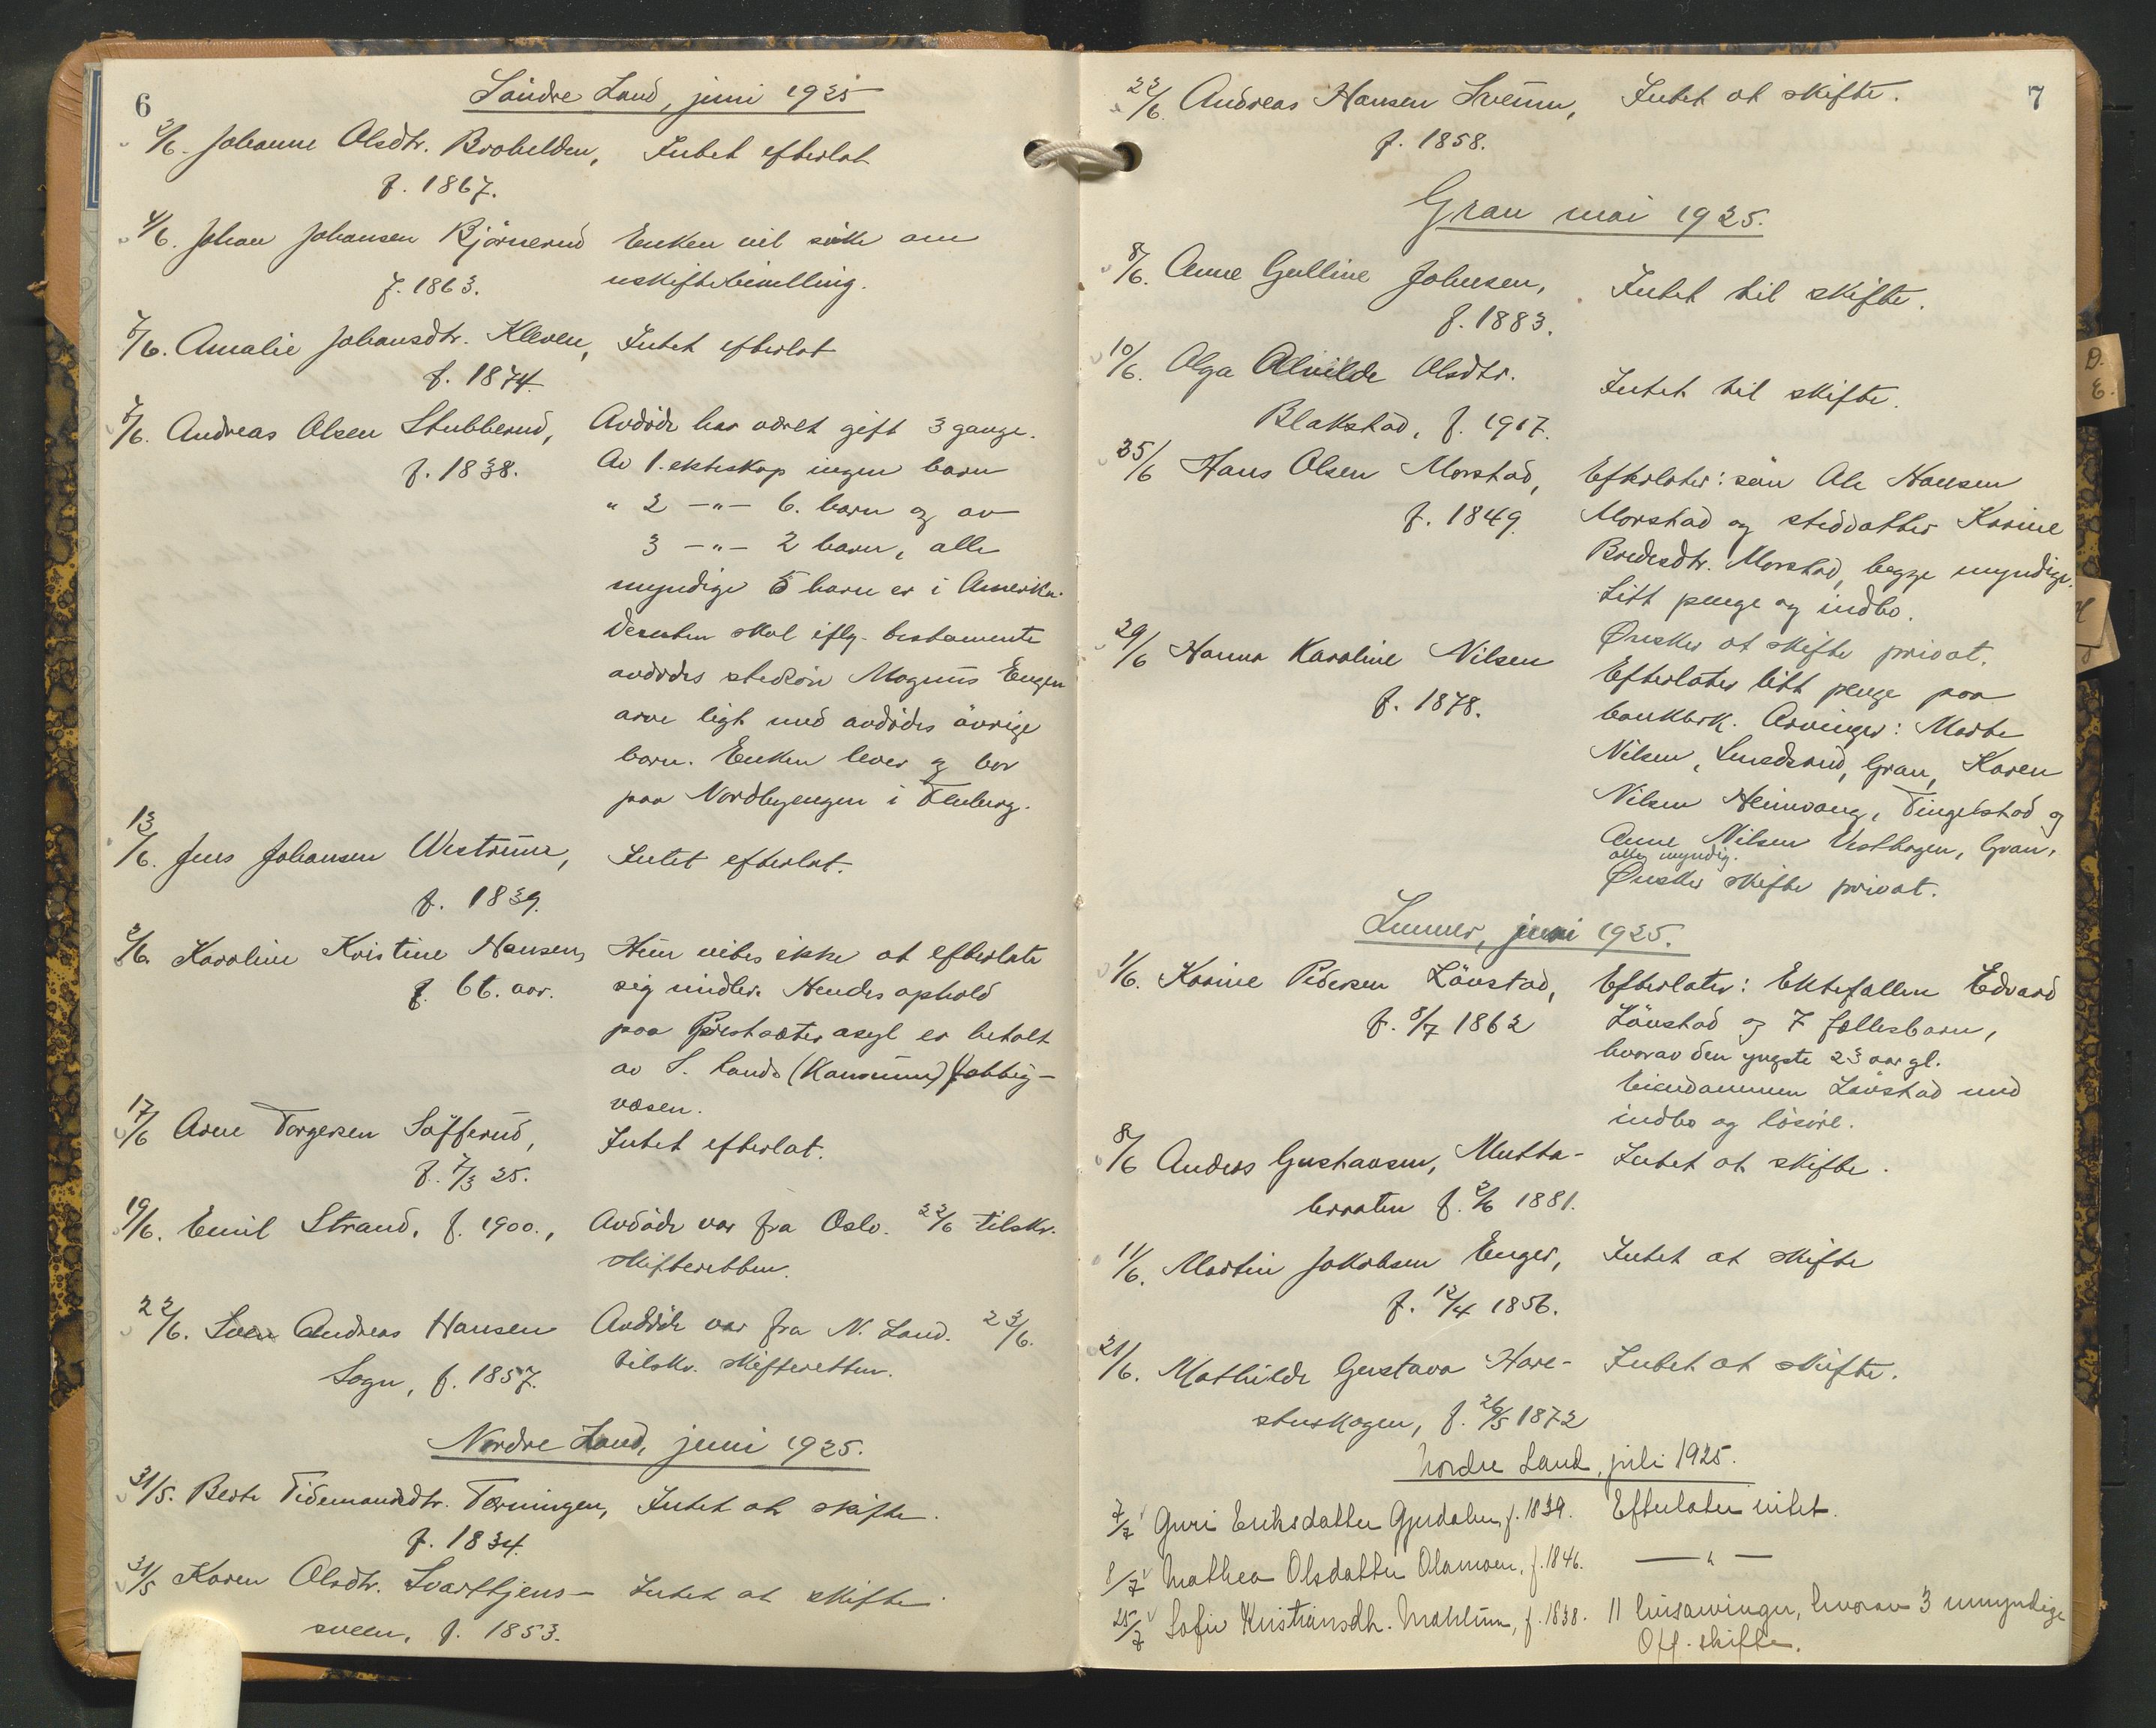 6
Søndre Land, juni 1925
3/6. Johanne Olsdtr. Brohelden, Intet efterlat
f. 1867.
4/6. Johan Johansen Bjørnerud Enken vil søke om
f. 1863. uskiftebevilling.
7/6. Amalie Johansdtr. Kleven, Intet efterlat
f. 1874.
7/6. Andreas Olsen Stubberud, Avdøde har været gift 3 gange.
f. 1838. Av 1. ekteskap ingen barn
" 2 -"- 6. barn og av
3 -"- 2 barn, alle
myndige 5 barn er i Amerika.
Desuten skal iflg. testamente
avdødes stedsøn Magnus Engen
arve likt med avdødes øvrige
barn. Enken lever og bor
paa Nordbyengen i Fluberg.
13/6. Jens Johansen Westrum, Intet efterlat.
f. 1839.
2/6. Karoline Kristine Hansen, Hun vites ikke at efterlate
f. 66. aar. sig midler. Hendes ophold
paa Prestsæter asyl er betalt
av S. Lands (Kommune) fattig-
væsen.
17/6 Arne Torgersen Søfferud, Intet efterlat.
f. 7/3 25.
19/6. Emil Strand, f. 1900., Avdøde var fra Oslo. 22/6 tilskr.
skifteretten.
22/6. Sven Andreas Hansen Avdøde var fra N. Land. 23/6.
Sogn, f. 1857. tilskr. skifteretten.
Nordre Land, juni 1925.
31/5. Berte Tidemandsdtr. Tørningen, Intet at skifte.
f. 1834.
31/5 Karen Olsdtr. Svarttjens- Intet at skifte.
sveen, f. 1853.
7
22/6. Andreas Hansen Svenn, Intet at skifte.
f. 1858.
Gran mai 1925.
8/6. Anne Gulline Johnsen, Intet til skifte.
f. 1883.
10/6. Olga Alvilde Olsdtr.
Blakstad, f. 1917. Intet til skifte.
25/6 Hans Olsen Morstad, Efterlater: søn Ole Hansen
f. 1849. Morstad og steddatter Karine
Bredesdtr. Morstad, begge myndige.
Litt penge og indbo.
Ønsker at skifte privat.
29/6 Hanna Karoline Nilsen Efterlater litt penge paa
f. 1878. bankbok. Arvinger: Marte
Nilsen, Lunderud, Gran, Karen
Nilsen Heimvang, Tingelstad og
Anne Nilsen Vesthagen, Gran,
alle myndig.
Ønsker skifte privat.
Lunner, juni 1925.
1/6. Karine Pedersen Løvstad, Efterlater: Ektefællen Edvard
f. 8/7 1862 Løvstad og 7 fællesbarn,
hvorav den yngste 23 aar gl.
Eiendommen Løvstad med
indbo og løsøre.
8/6 Anders Gustavsen, Mutta- Intet at skifte.
braaten f. 2/6 1881.
11/6. Martin Jakobsen Enger, Intet at skifte
f. 12/4 1856.
21/6. Mathilde Gustava Hare- Intet at skifte.
stuskogen, f. 26/5 1872
Nordre Land, juli 1925.
7/7 Guri Eriksdatter Gjerdalen, f. 1839. Efterlater intet.
8/7 Mathea Olsdatter Olamoen, f. 1846. — " —
25/7 Sofie Kristiansdtr. Mahlum, f. 1838. 11 livsarvinger, hvorav 3 umyndige
Off. skifte.